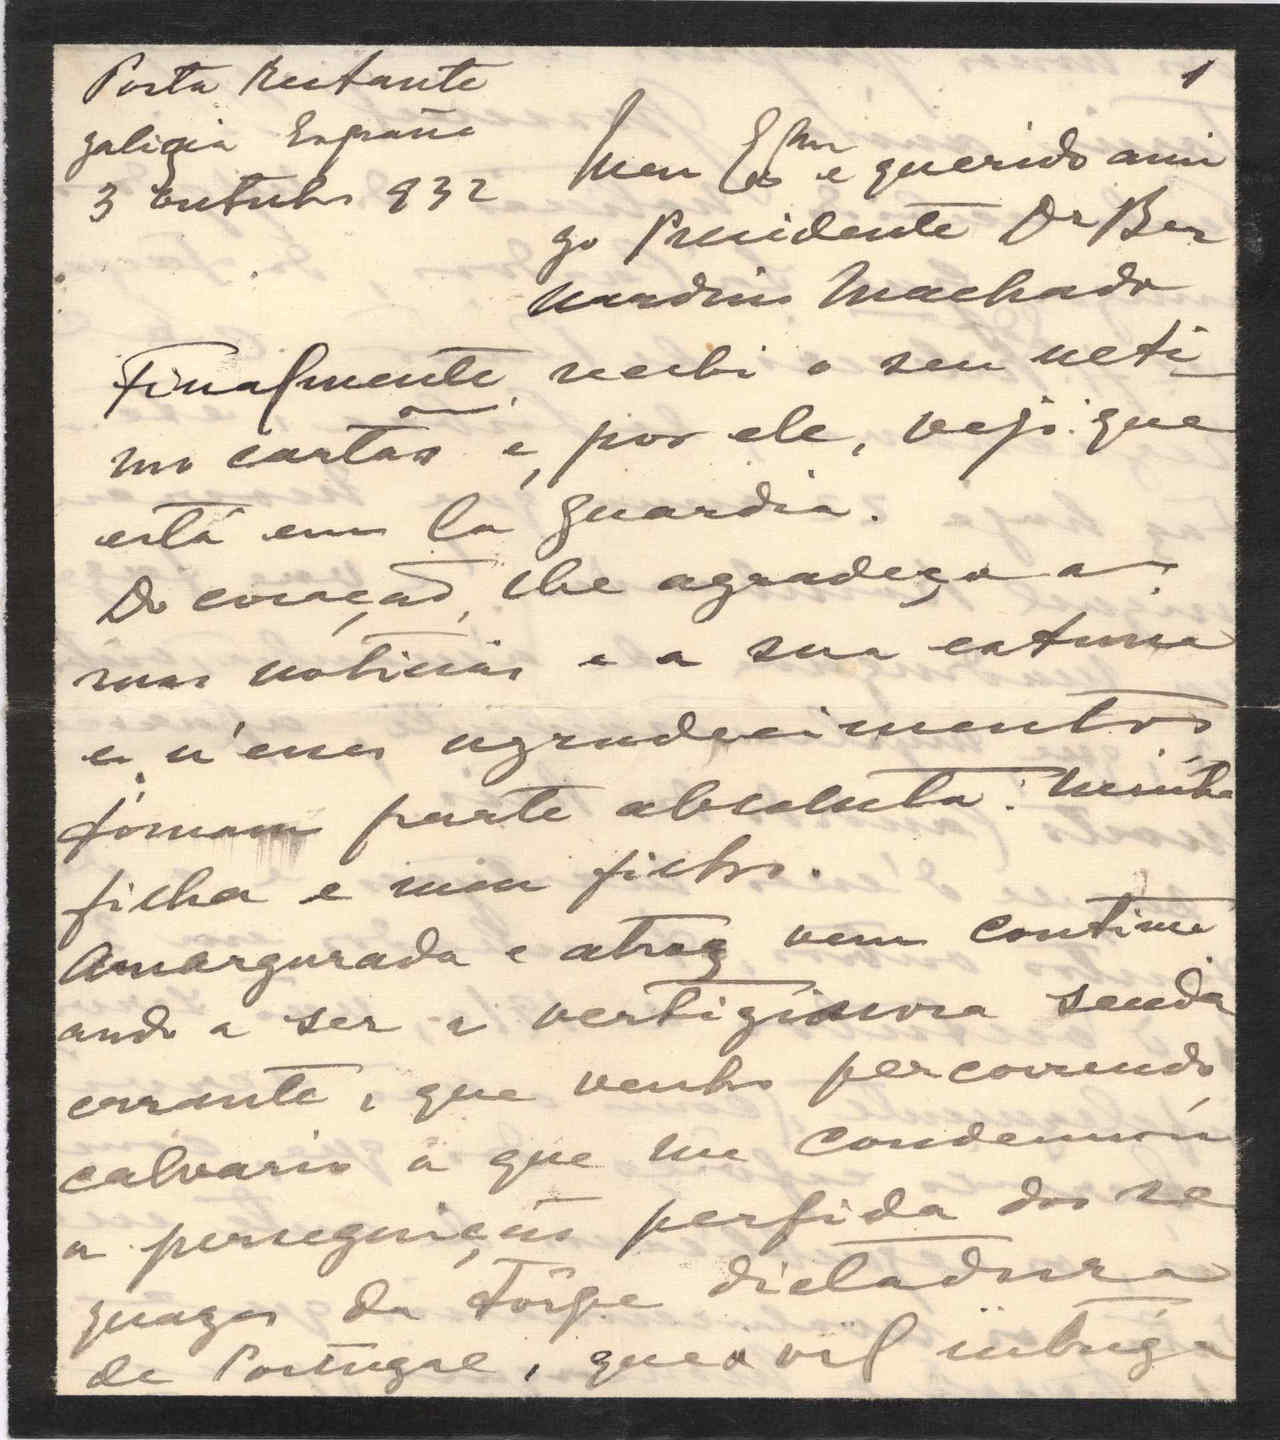 Posta Restante
Galicia España
3 outubro 932
1
Meu Exmo e querido ami
go Presidente Dr Ber
nardino Machado
Finalmente, recebi o seu ulti
mo cartão e, por ele, vejo que
está em La Guardia.
Do coração, lhe agradeço as
suas noticias e a sua estima
e n'esses agradecimentos
tomam parte absoluta: minha
filha e meu filho.
Amargurada e atroz vem continu
ando a ser a vertiginosa senda
errante, que venho percorrendo,
calvario a que me condemnou
a perseguição perfida dos se
quazes da tôrpe dictadura
de Portugal, que a vil intriga